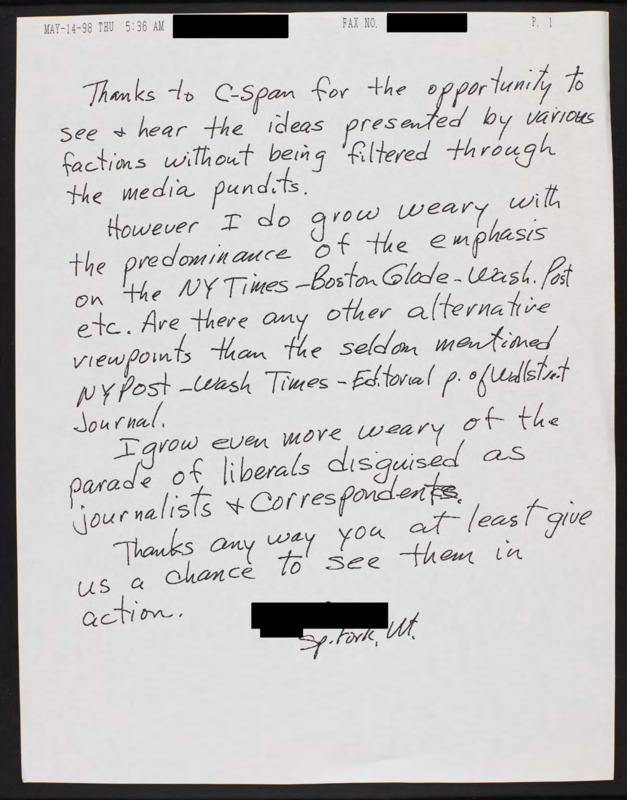 MAY-14-98 THU 5:36 AM FAX NO. P. 1
Thanks to C-Span for the opportunity to
see & hear the ideas presented by various
factions without being filtered through
the media pundits.
However I do grow weary with
the predominance of the emphasis
on the NY Times - Boston Glode - Wash. Post
etc. Are there any other alternative
viewpoints than the seldom mentioned
NY Post - Wash Times - Editorial p. of Wallstreet
Journal.
I grow even more weary of the
parade of liberals disguised as
journalists & Correspondents.
Thanks any way you at least give
us a chance to see them in
action.
Sp. Fork, Ut.